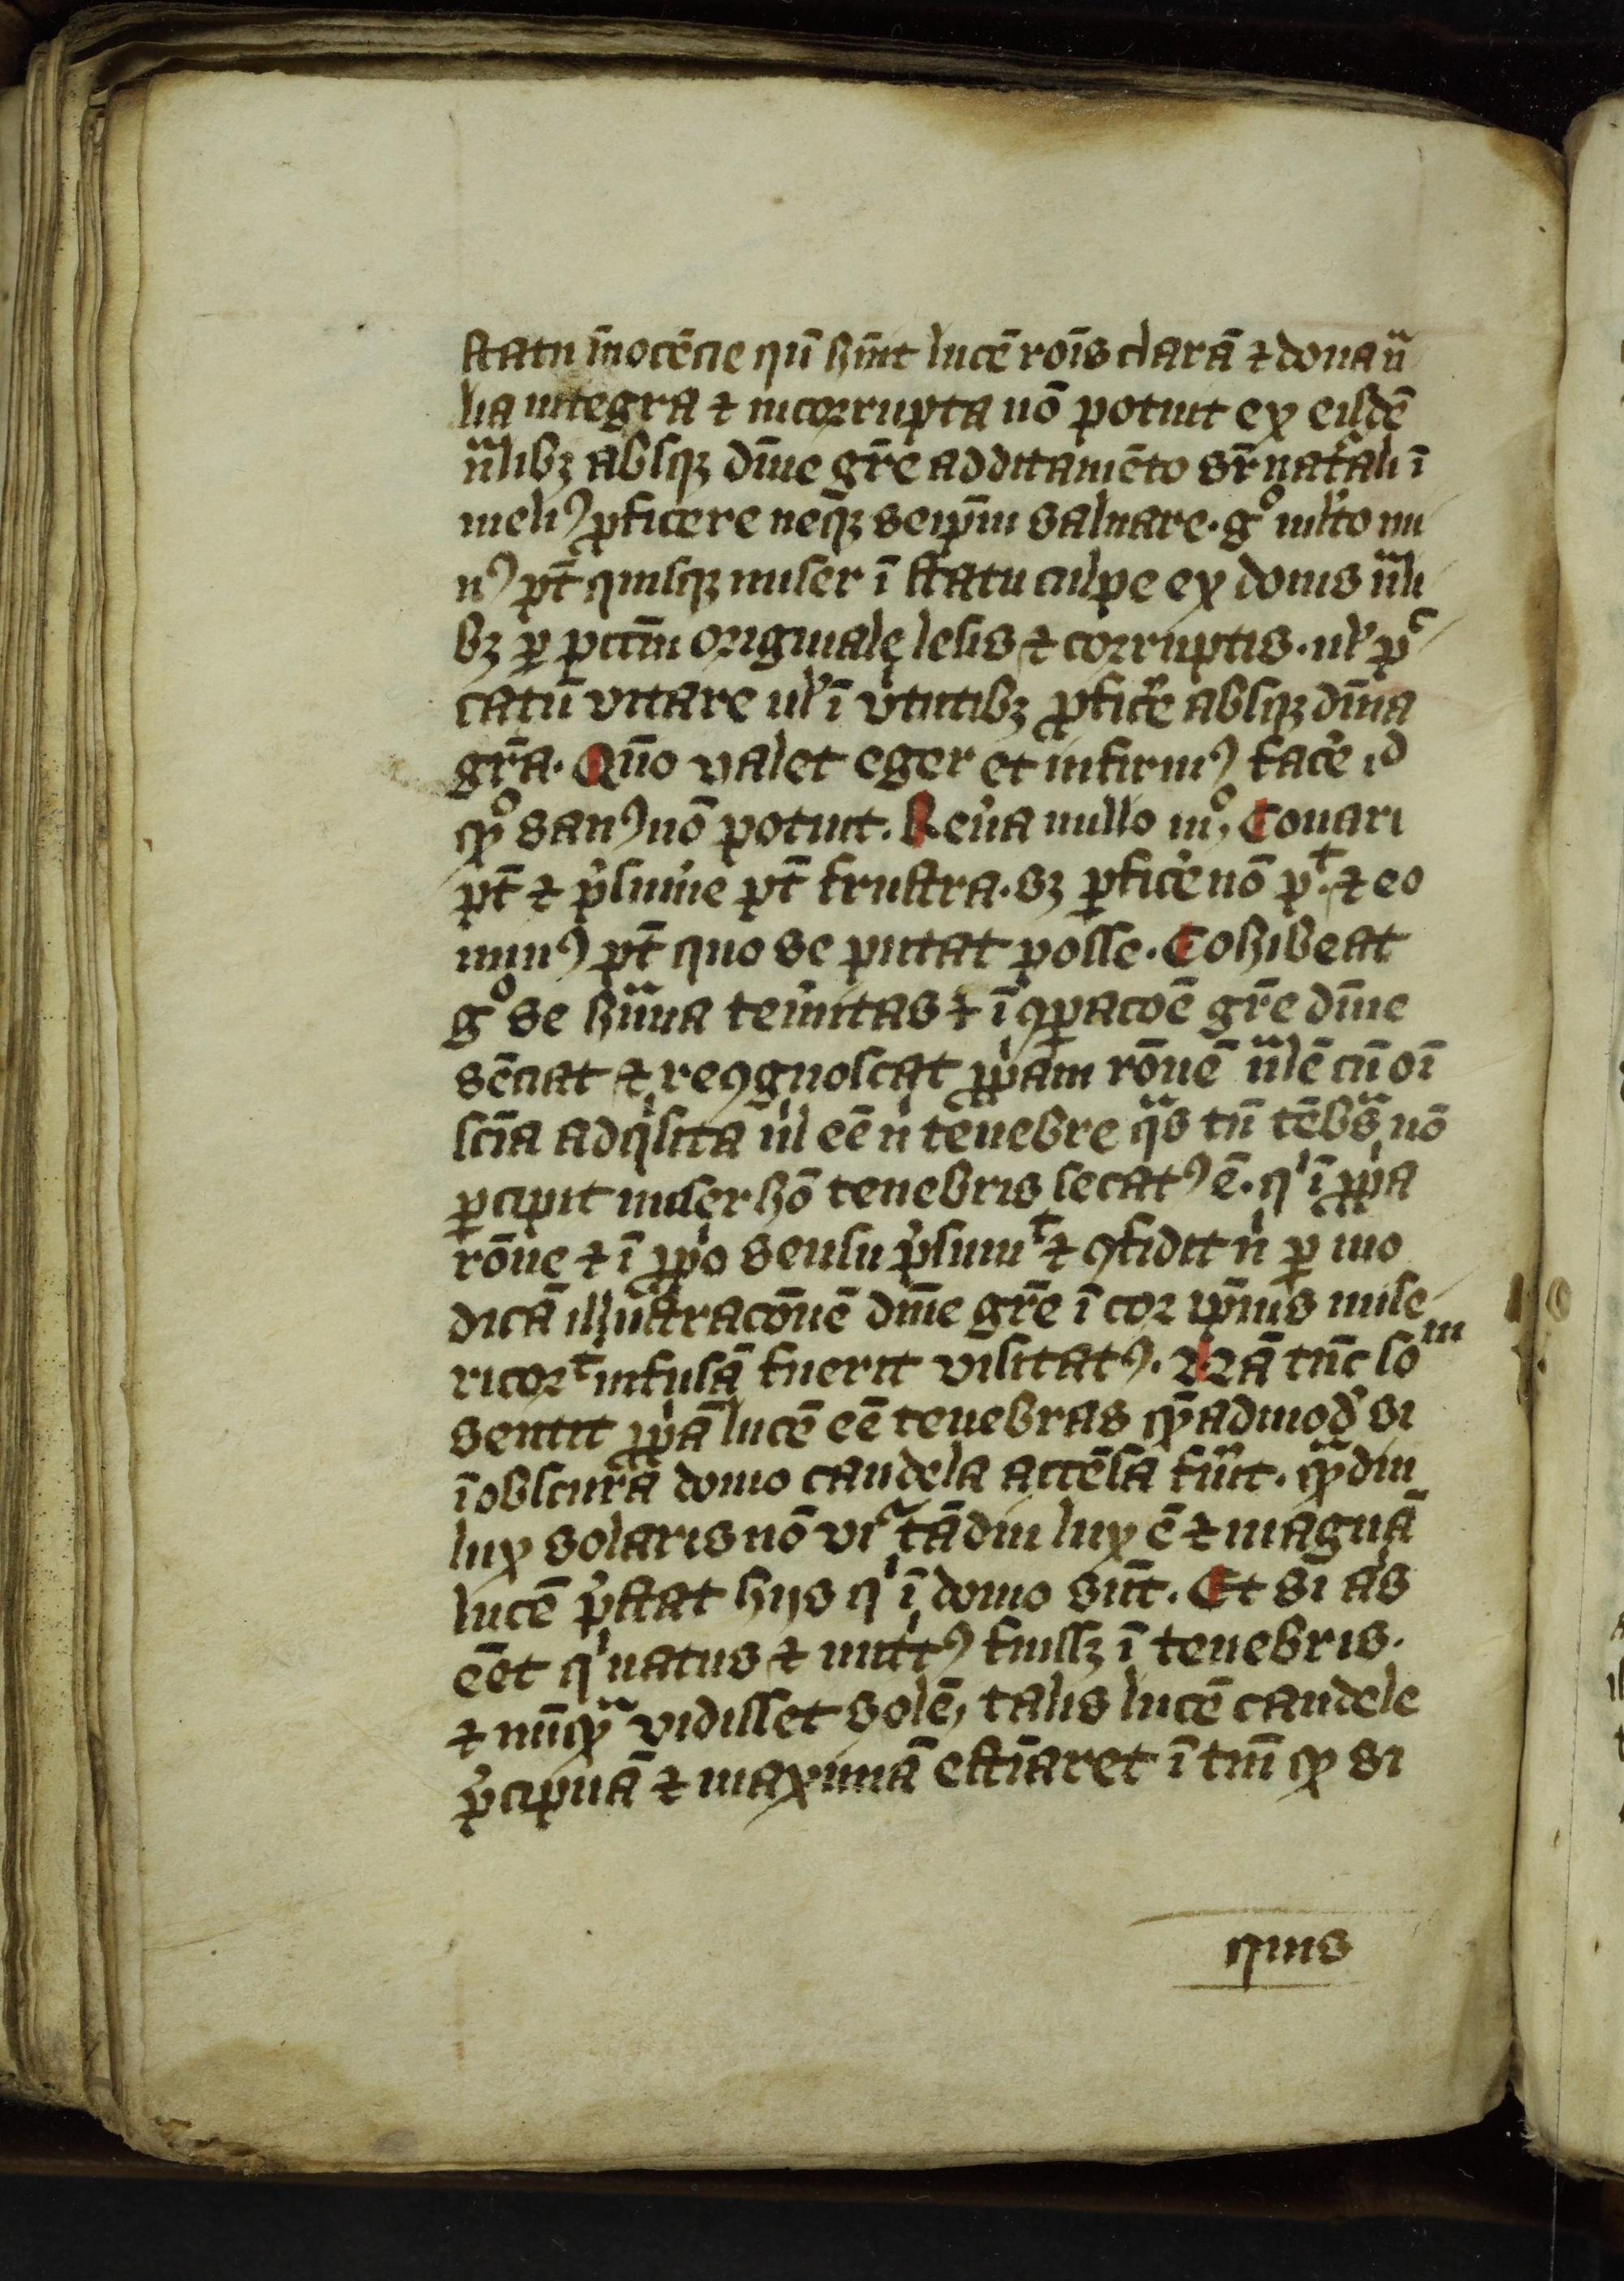 statu īnocēcie qn̄ hūit lucē rōis clarā ⁊ dona nͣ
lia integra ⁊ incorrupta nō potuit ex eisdē
nͣlibꝫ absqꝫ diuīe gr̄e additamēto sr̄natᵃali ī
meliꝰ ꝓficere neqꝫ seip̄m saluare · gͦ ml̄to mi
nꝰ pt̄ quisqꝫ miser ī statu culpe ex donis nͣli
bꝫ ꝑ pctm̄ originale lesis ⁊ corruptis · ul̓ pᶜ
catū vitare ul̓ ī v̓tutibꝫ ꝓficˀe absqꝫ diuīa
gr̄a · Quō valet eger et infirmꝰ facˀe id
qͦ sanꝰ nō potuit . Reūa nullo mͦ · Conari
pt̄ ⁊ p̄sumˀe pt̄ frustra · sꝫ ꝓficˀe nō pᵗ · ⁊ eo
minꝰ pt̄ quo se putat posse · Cohibeat
gͦ se hūana temˀitas ⁊ ī ꝯꝑacōe gr̄e diuīe
sēciat ⁊ reꝯgnoscat ꝓpͥam rōnē nͣlē cū oī
sciā adqͥsita nͥl eē nͥ tenebre qͣs tn̄ tēbsͣ nō
ꝑcipit miser hō tenebris secatꝰ ē · qͥ ī ꝓpͥa
rōne ⁊ ī ꝓpͥo sensu p̄sumᵗ ⁊ ꝯfidit nͥ ꝑ mo
dicā illustracōnē diuīe gr̄e ī cor ip̄ius mise
ricorᵗ infusā fuerit visitatꝰ · Nā tūc soᵐ
sentit ꝓpͥā lucē eē tenebras qͤadmod̄ si
ī obscura domo candela accēsa fuīt · qͣdiu
lux solaris nō vrᷓ tādiu lux ē ⁊ magnā
lucē p̄stat hijs qͥ ī domo sūt . Et si aͥs
eēt qͥ natus ⁊ nutͥtꝰ fuissꝫ ī tenebris ·
⁊ nūqͣ vidisset solē , talis lucē candele
p̄cipuā ⁊ maximā estiāret ī tm̄ qͥ si
quis